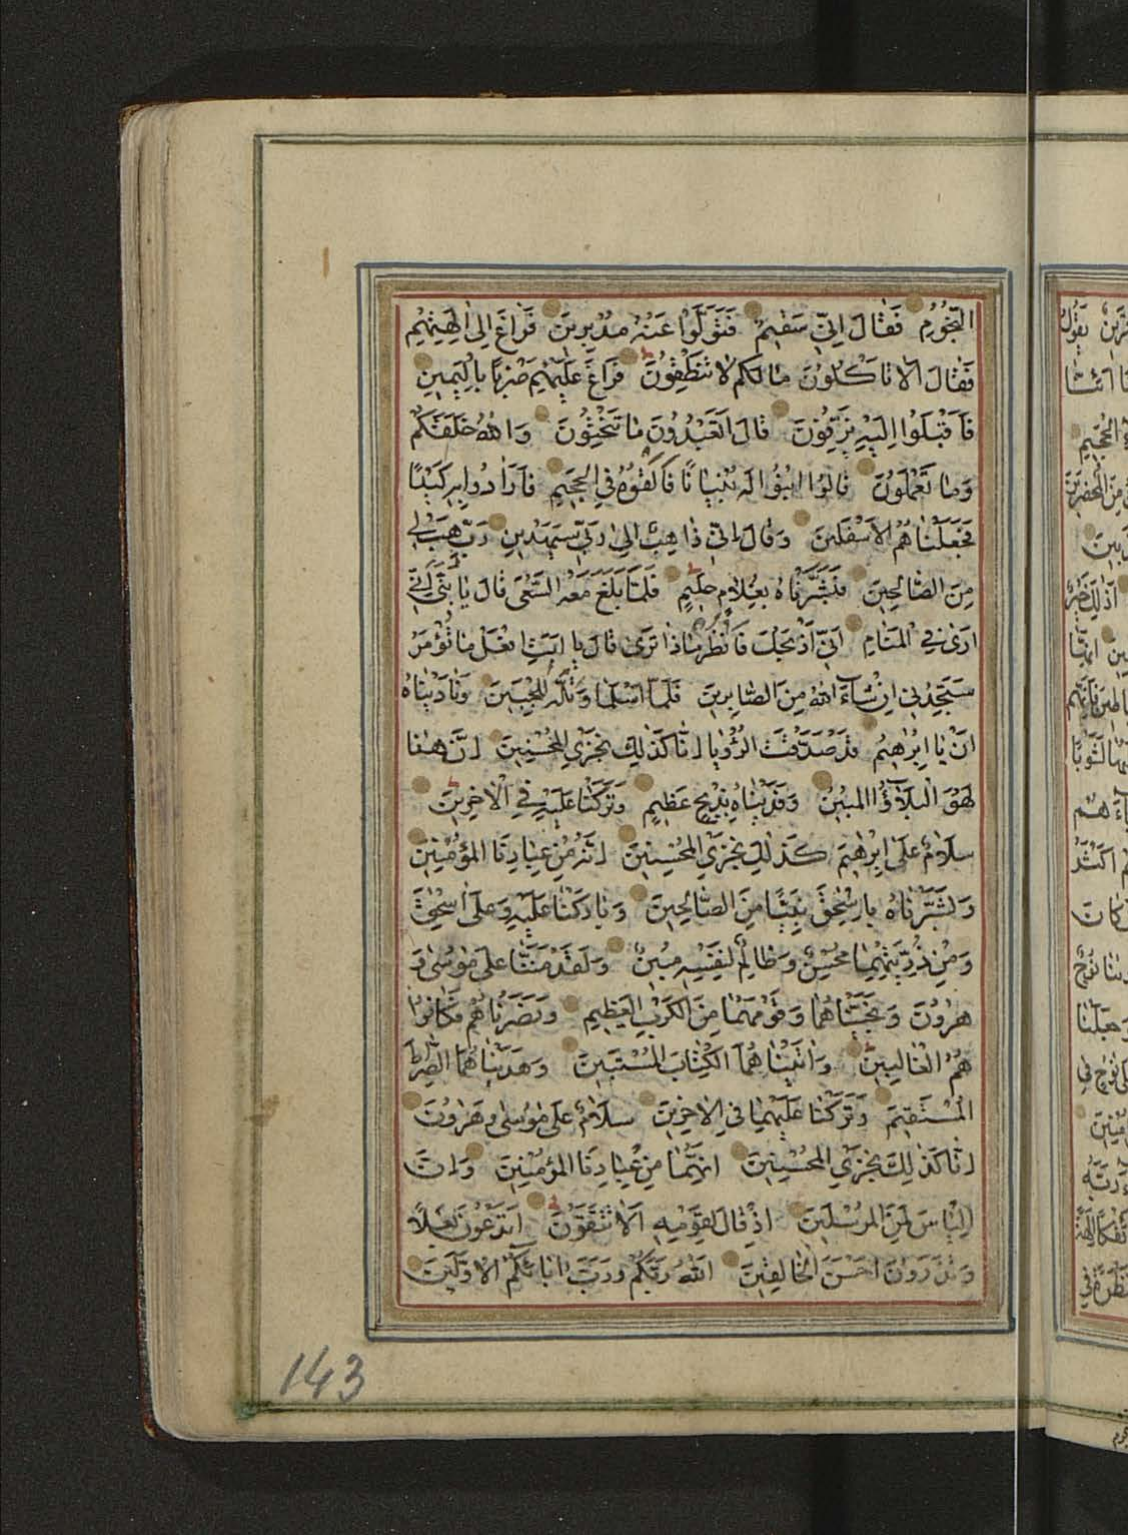 النُّجُومِ فَقَالَ اِنّٖى سَقٖيمٌ فَتَوَلَّوْا عَنْهُ مُدْبِرٖينَ فَرَاغَ اِلٰى اٰلِهَتِهِمْ
فَقَالَ اَلَا تَاْكُلُونَ مَا لَكُمْ لَا تَنْطِقُونَ فَرَاغَ عَلَيْهِمْ ضَرْبًا بِالْيَمٖينِ
فَاَقْبَلُوا اِلَيْهِ يَزِفُّونَ قَالَ اَتَعْبُدُونَ مَا تَنْحِتُونَ وَاللّٰهُ خَلَقَكُمْ
وَمَا تَعْمَلُونَ قَالُوا ابْنُوا لَهُ بُنْيَانًا فَاَلْقُوهُ فِى الْجَحٖيمِ فَاَرَادُوا بِهٖ كَيْدًا
فَجَعَلْنَاهُمُ الْاَسْفَلٖينَ وَقَالَ اِنّٖى ذَاهِبٌ اِلٰى رَبّٖى سَيَهْدٖينِ رَبِّ هَبْ لٖى
مِنَ الصَّالِحٖينَ فَبَشَّرْنَاهُ بِغُلَامٍ حَلٖيمٍ فَلَمَّا بَلَغَ مَعَهُ السَّعْىَ قَالَ يَا بُنَىَّ اِنّٖى
اَرٰى فِى الْمَنَامِ اَنّٖى اَذْبَحُكَ فَانْظُرْ مَاذَا تَرٰى قَالَ يَا اَبَتِ افْعَلْ مَا تُؤْمَرُ
سَتَجِدُنٖى اِنْ شَآءَ اللّٰهُ مِنَ الصَّابِرٖينَ فَلَمَّا اَسْلَمَا وَتَلَّهُ لِلْجَبٖينِ وَنَادَيْنَاهُ
اَنْ يَا اِبْرٰهٖيمُ قَدْ صَدَّقْتَ الرُّؤْيَا اِنَّا كَذٰلِكَ نَجْزِى الْمُحْسِنٖينَ اِنَّ هٰذَا
لَهُوَ الْبَلٰٓؤُا الْمُبٖينُ وَفَدَيْنَاهُ بِذِبْحٍ عَظٖيمٍ وَتَرَكْنَا عَلَيْهِ فِى الْاٰخِرٖينَ
سَلَامٌ عَلٰى اِبْرٰهٖيمَ كَذٰلِكَ نَجْزِى الْمُحْسِنٖينَ اِنَّهُ مِنْ عِبَادِنَا الْمُؤْمِنٖينَ
وَبَشَّرْنَاهُ بِاِسْحٰقَ نَبِيًّا مِنَ الصَّالِحٖينَ وَبَارَكْنَا عَلَيْهِ وَعَلٰى اِسْحٰقَ
وَمِنْ ذُرِّيَّتِهِمَا مُحْسِنٌ وَظَالِمٌ لِنَفْسِهٖ مُبٖينٌ وَلَقَدْ مَنَنَّا عَلٰى مُوسٰى وَ
هٰرُونَ وَنَجَّيْنَاهُمَا وَقَوْمَهُمَا مِنَ الْكَرْبِ الْعَظٖيمِ وَنَصَرْنَاهُمْ فَكَانُوا
هُمُ الْغَالِبٖينَ وَاٰتَيْنَاهُمَا الْكِتَابَ الْمُسْتَبٖينَ وَهَدَيْنَاهُمَا الصِّرَاطَ
الْمُسْتَقٖيمَ وَتَرَكْنَا عَلَيْهِمَا فِى الْاٰخِرٖينَ سَلَامٌ عَلٰى مُوسٰى وَهٰرُونَ
اِنَّا كَذٰلِكَ نَجْزِى الْمُحْسِنٖينَ اِنَّهُمَا مِنْ عِبَادِنَا الْمُؤْمِنٖينَ وَاِنَّ
اِلْيَاسَ لَمِنَ الْمُرْسَلٖينَ اِذْ قَالَ لِقَوْمِهٖ اَلَا تَتَّقُونَ اَتَدْعُونَ بَعْلًا
وَتَذَرُونَ اَحْسَنَ الْخَالِقٖينَ اَللّٰهَ رَبَّكُمْ وَرَبَّ اٰبَائِكُمُ الْاَوَّلٖينَ
143